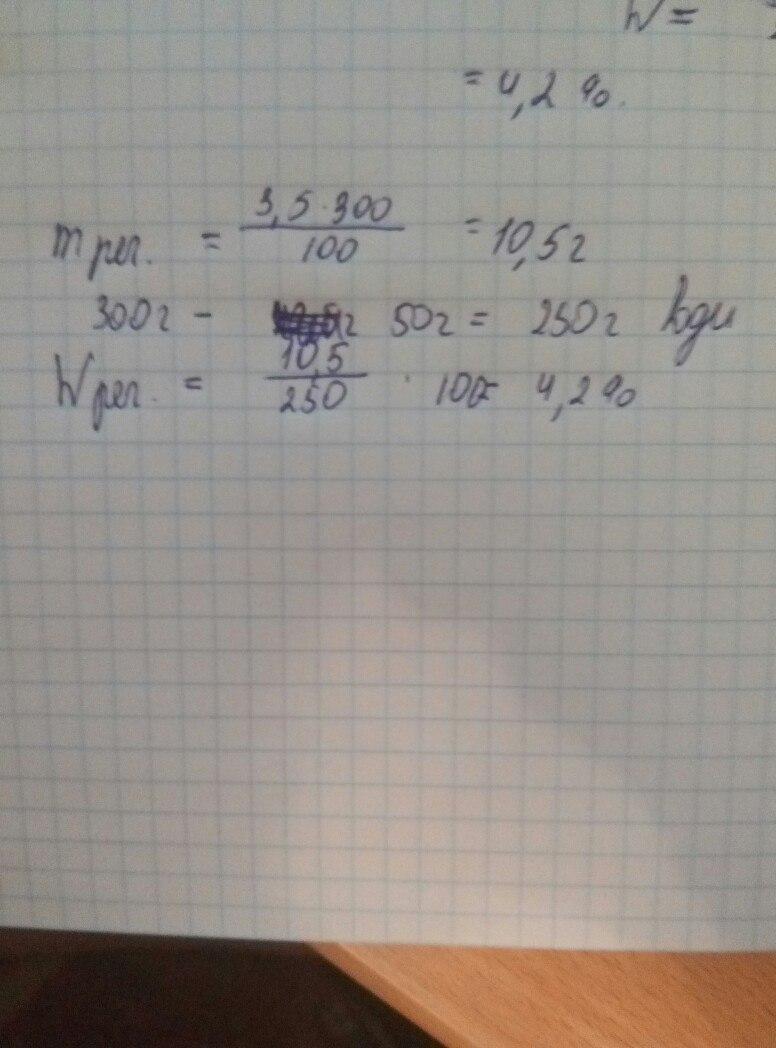 W =
= 4,2 %.
m реч. = 3,5 · 300 / 100 = 10,5 г
300 г - 50 г = 250 г води
W реч. = 10,5 / 250 · 100 = 4,2 %